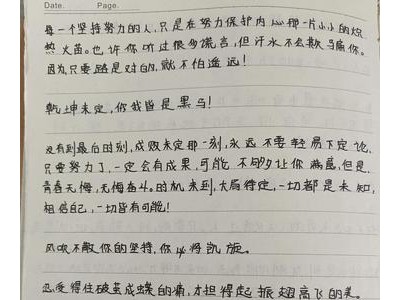 Date. Page.
每一个坚持努力的人,只是在努力保护内心那一片小小的炽
热火苗。也许你听过很多谎言,但汗水不会欺骗你。
因为只要路是对的,就不怕遥远!
乾坤未定,你我皆是黑马!
没有到最后时刻,成败未定那一刻,永远不要轻易下定论,
只要努力了,一定会有成果,可能不够让你满意,但是,
青春无悔,无悔奋斗。时机未到,大局待定,一切都是未知,
相信自己,一切皆有可能!
风吹不散你的坚持,你必将凯旋。
忍受得住破茧成蝶的痛,才担得起振翅高飞的美。